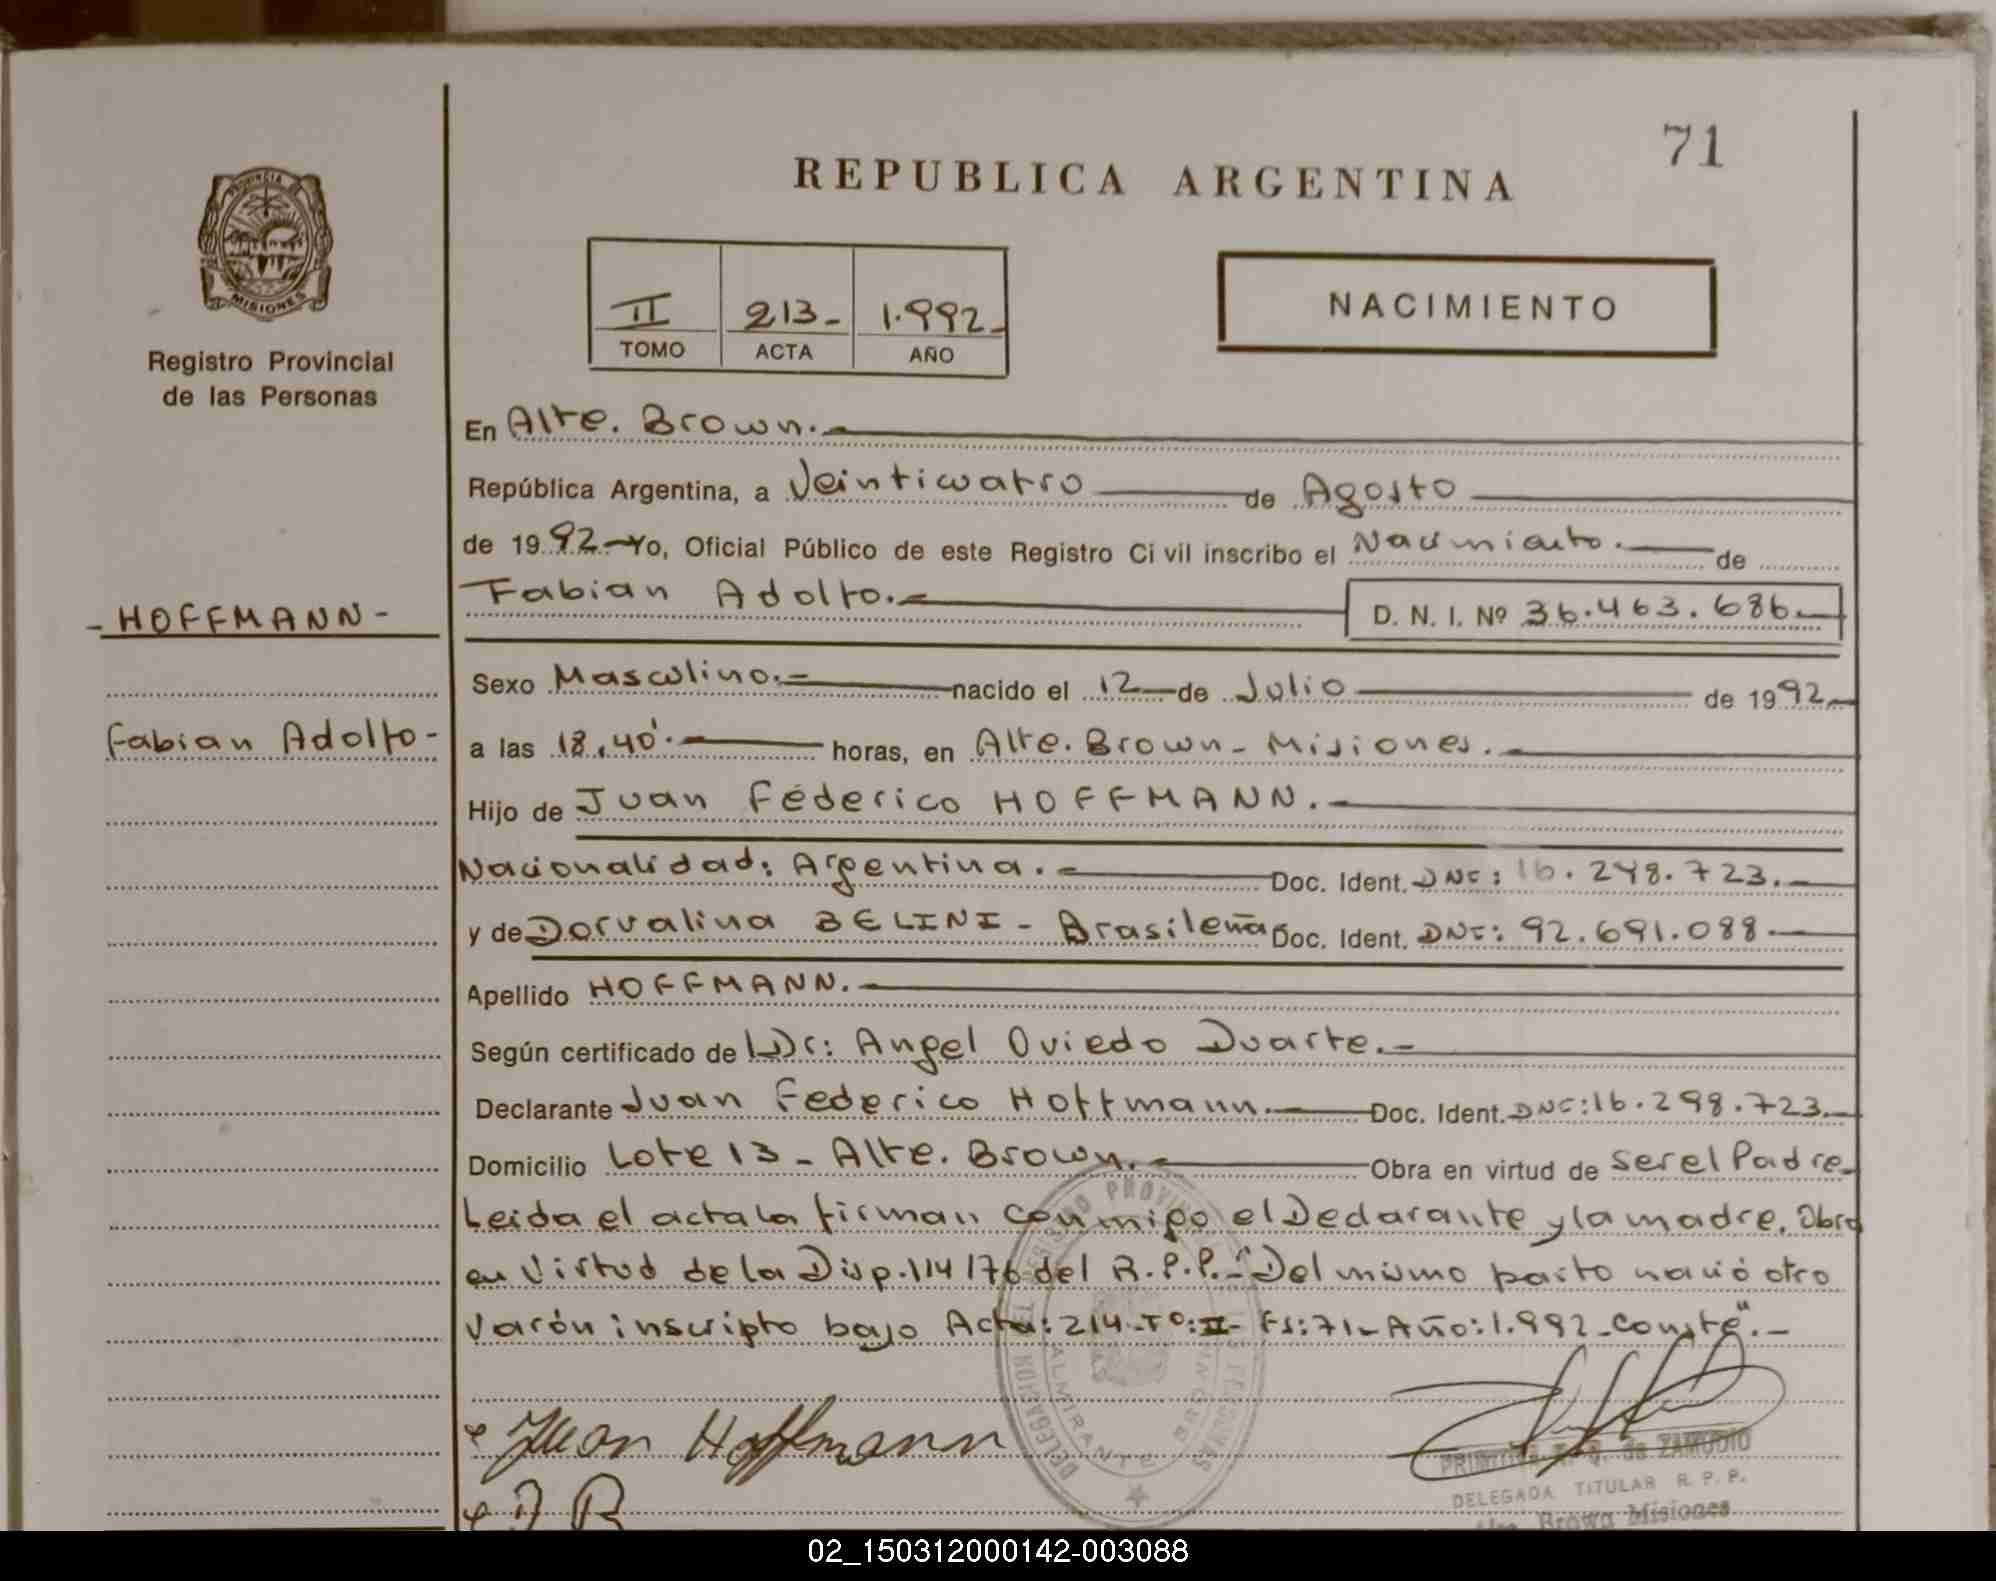 71
REPUBLICA ARGENTINA
PROVINCIA DE
MISIONES
Registro Provincial
de las Personas
II 213- 1.992-
TOMO ACTA AÑO
NACIMIENTO
En Alte. Brown.-
República Argentina, a Veinticuatro de Agosto
de 1992- Yo, Oficial Público de este Registro Civil inscribo el Nacimiento. de
Fabian Adolfo.-
D. N. I. Nº 36.463.686.-
- HOFFMANN -
Fabian Adolfo -
Sexo Masculino.- nacido el 12 de Julio de 1992.-
a las 18,40'.- horas, en Alte. Brown - Misiones.-
Hijo de Juan Féderico HOFFMANN.-
Nacionalidad: Argentina.- Doc. Ident. DNI: 16.298.723.-
y de Dorvalina BELINI - Brasileña Doc. Ident. DNI: 92.691.088.-
Apellido HOFFMANN.-
Según certificado de Dr: Angel Oviedo Duarte.-
Declarante Juan Federico Hoffmann.- Doc. Ident. DNI: 16.298.723.-
Domicilio Lote 13 - Alte. Brown.- Obra en virtud de ser el Padre-
Leida el acta la firman conmigo el Declarante y la madre. Obra
en Virtud de la Disp. 114/76 del R.P.P.- "Del mismo parto nació otro
Varón inscripto bajo Acta: 214-Tº: II- Fs: 71- Año: 1.992- Conste".-
Juan Hoffmann
D B
DELEGACION
ALMIRANTE BROWN
de ZAMUDIO
DELEGADA TITULAR R. P. P.
Brown Misiones
02_150312000142-003088